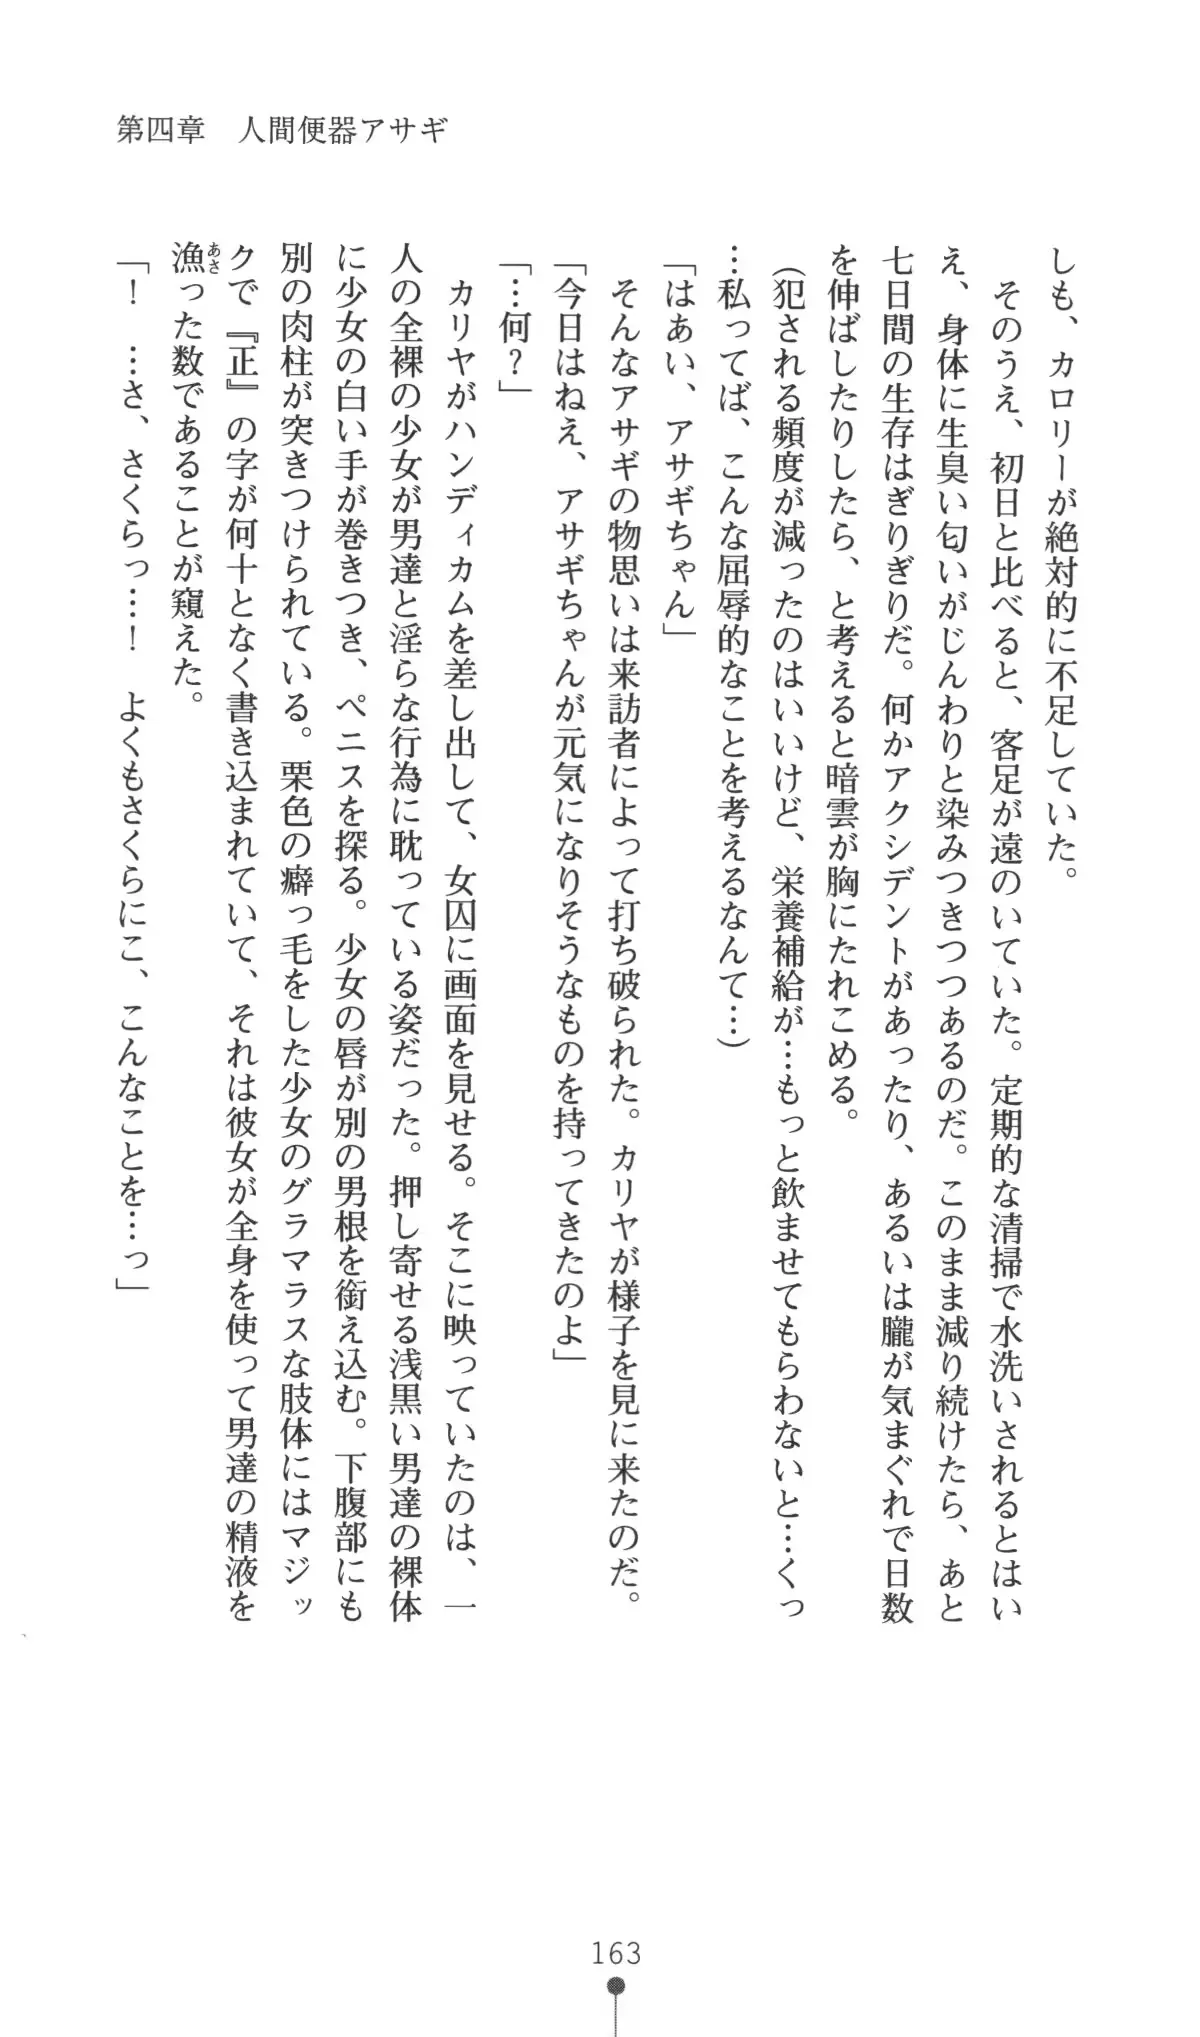 第四章　人間便器アサギ
しも、カロリーが絶対的に不足していた。
　そのうえ、初日と比べると、客足が遠のいていた。定期的な清掃で水洗いされるとはい
え、身体に生臭い匂いがじんわりと染みつきつつあるのだ。このまま減り続けたら、あと
七日間の生存はぎりぎりだ。何かアクシデントがあったり、あるいは朧が気まぐれで日数
を伸ばしたりしたら、と考えると暗雲が胸にたれこめる。
（犯される頻度が減ったのはいいけど、栄養補給が…もっと飲ませてもらわないと…くっ
…私ってば、こんな屈辱的なことを考えるなんて…）
「はあい、アサギちゃん」
　そんなアサギの物思いは来訪者によって打ち破られた。カリヤが様子を見に来たのだ。
「今日はねえ、アサギちゃんが元気になりそうなものを持ってきたのよ」
「…何？」
　カリヤがハンディカムを差し出して、女囚に画面を見せる。そこに映っていたのは、一
人の全裸の少女が男達と淫らな行為に耽っている姿だった。押し寄せる浅黒い男達の裸体
に少女の白い手が巻きつき、ペニスを探る。少女の唇が別の男根を銜え込む。下腹部にも
別の肉柱が突きつけられている。栗色の癖っ毛をした少女のグラマラスな肢体にはマジッ
クで『正』の字が何十となく書き込まれていて、それは彼女が全身を使って男達の精液を
漁あさった数であることが窺えた。
「！　…さ、さくらっ…！　よくもさくらにこ、こんなことを…っ」
163